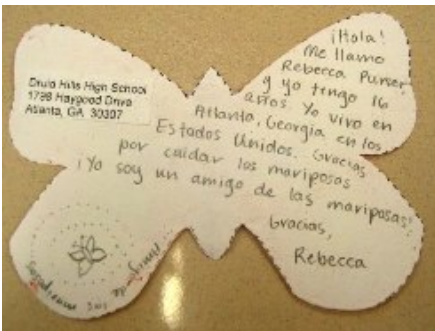 Druid Hills High School
1798 Haygood Drive
Atlanta, GA. 30307
¡Hola!
Me llamo
Rebecca Purser
y yo tengo 16
años Yo vivo en
Atlanta, Georgia en los
Estados Unidos. Gracias
por cuidar los mariposas
¡Yo soy un amigo de las mariposas!
Gracias,
Rebecca
Amigos de las mariposas